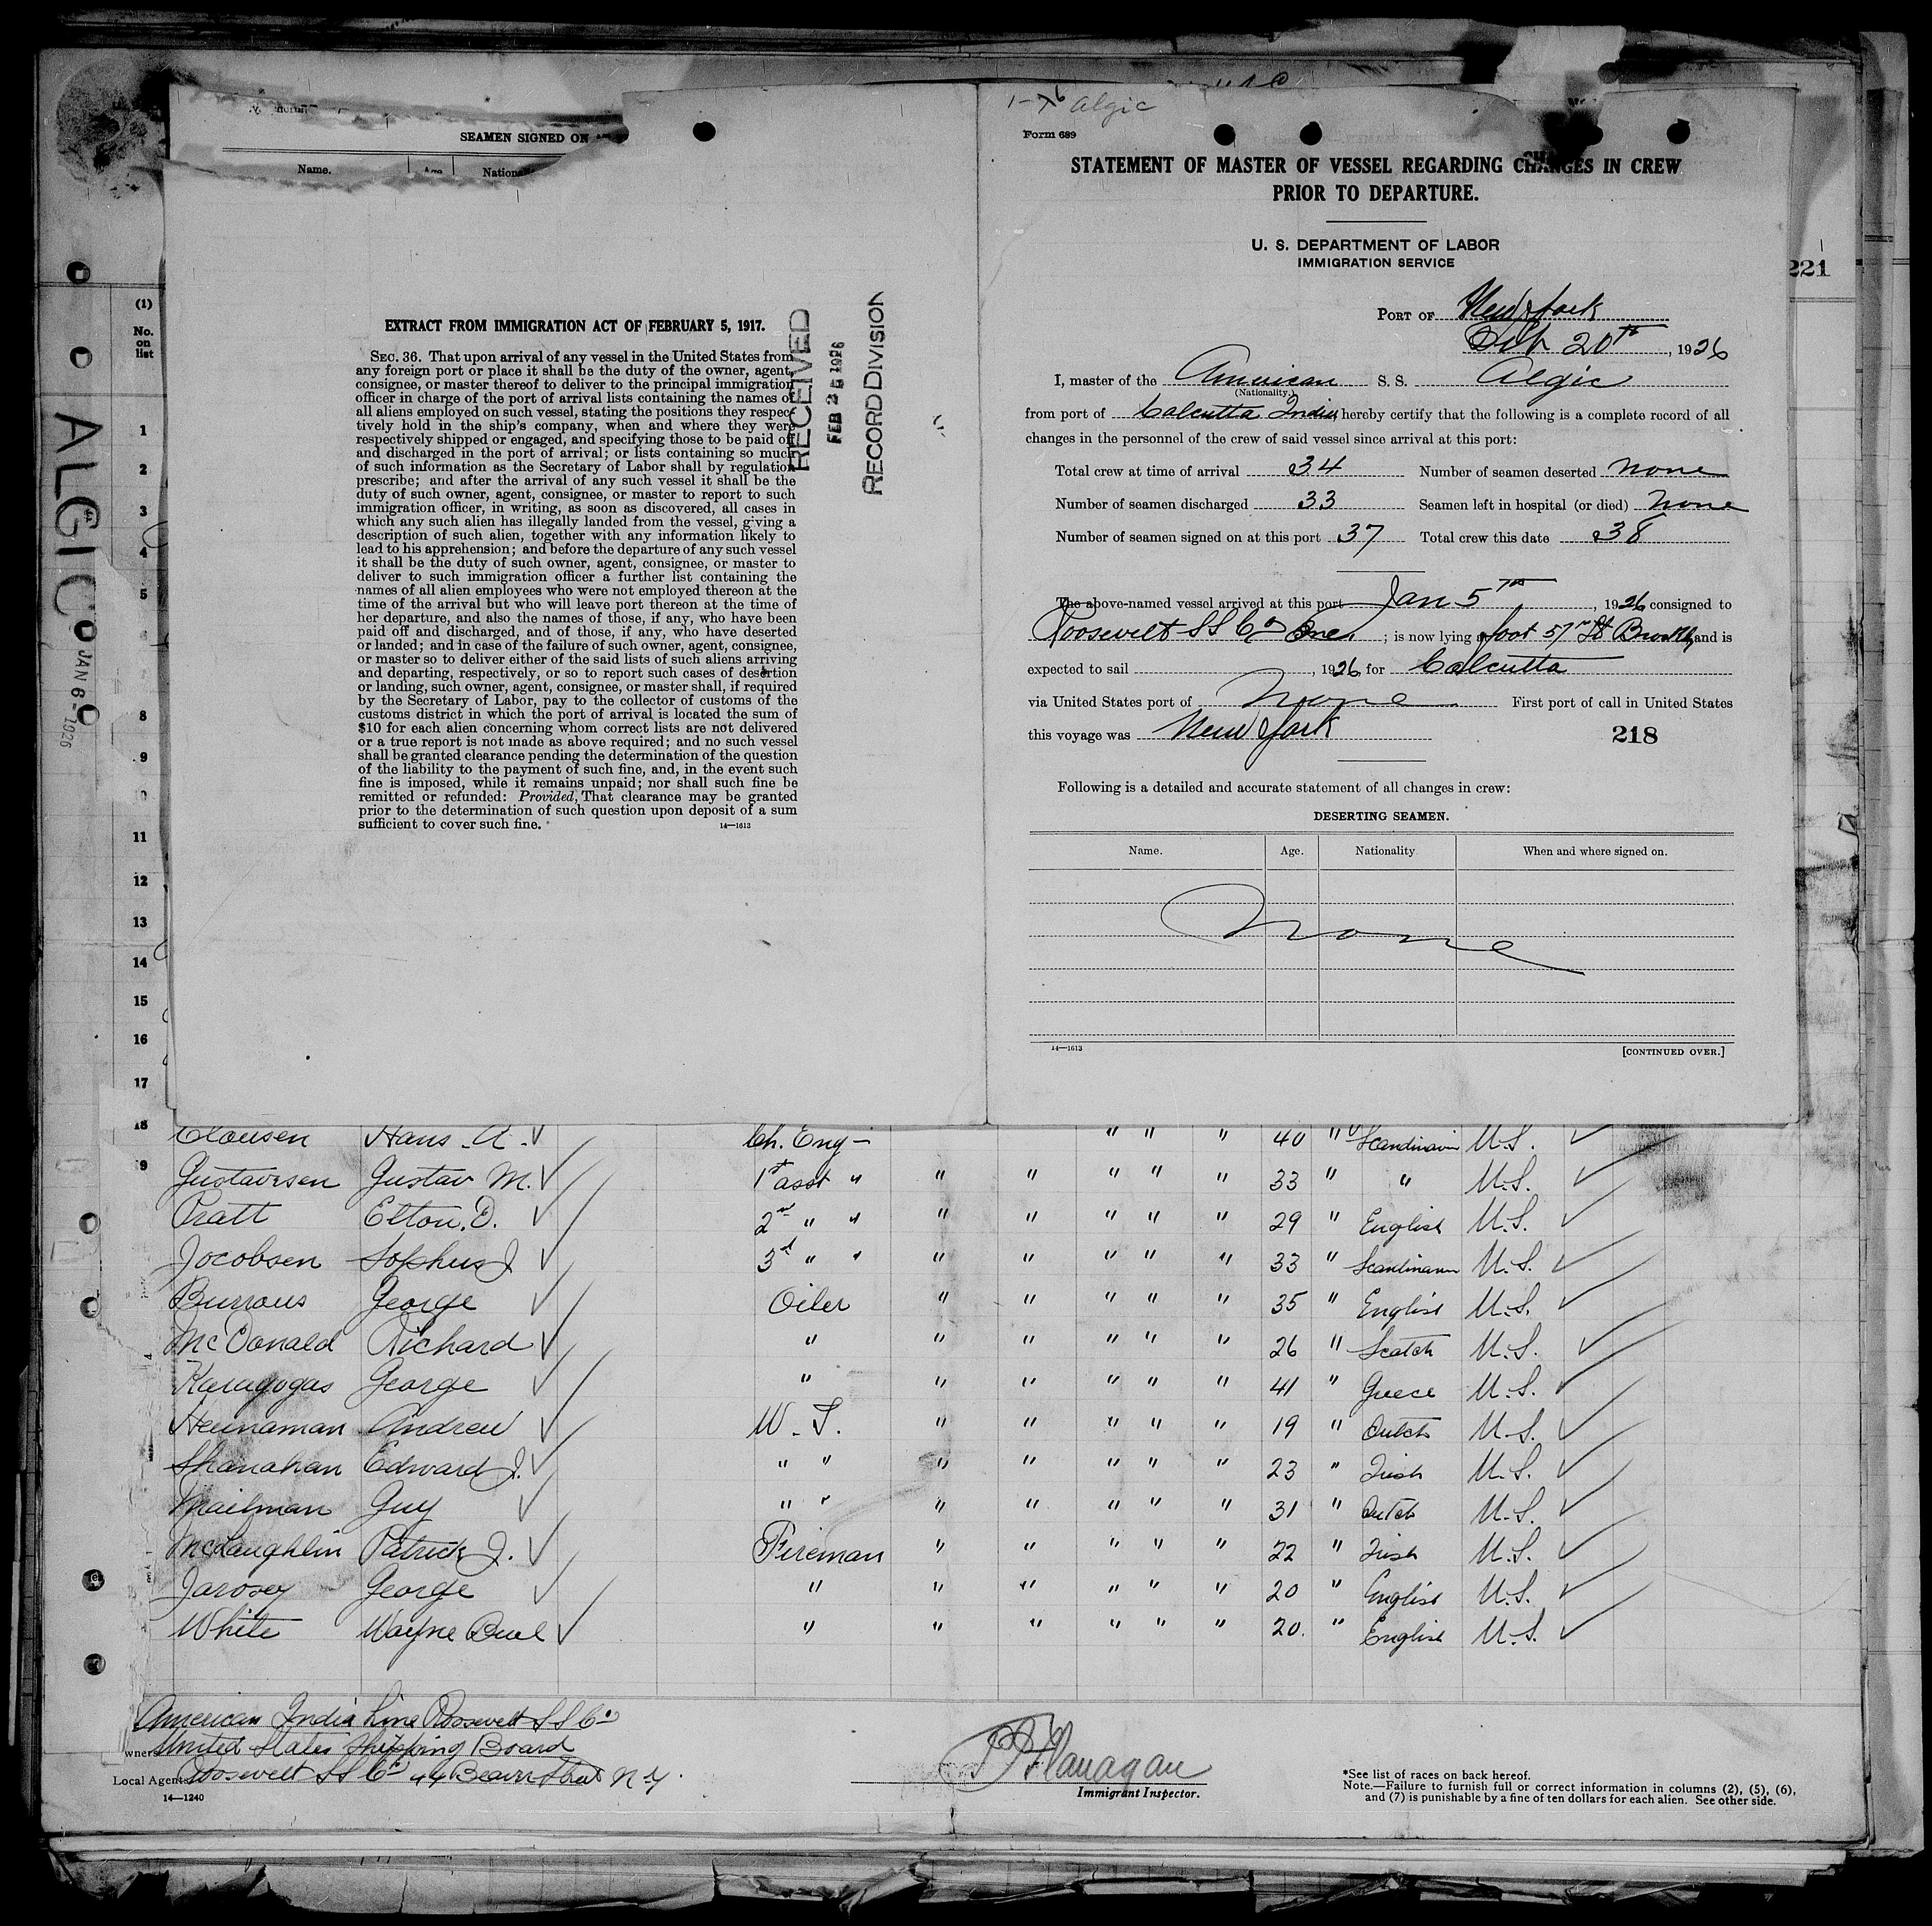 SEAMEN SIGNED ON
Name.
Age
EXTRACT FROM IMMIGRATION ACT OF FEBRUARY 5, 1917.
SEC. 36. That upon arrival of any vessel in the United States from
any foreign port or place it shall be the duty of the owner, agent,
consignee, or master thereof to deliver to the principal immigration
officer in charge of the port of arrival lists containing the names of
all aliens employed on such vessel, stating the positions they respec-
tively hold in the ship's company, when and where they were
respectively shipped or engaged, and specifying those to be paid off
and discharged in the port of arrival; or lists containing so much
of such information as the Secretary of Labor shall by regulation
prescribe; and after the arrival of any such vessel it shall be the
duty of such owner, agent, consignee, or master to report to such
immigration officer, in writing, as soon as discovered, all cases in
which any such alien has illegally landed from the vessel, giving a
description of such alien, together with any information likely to
lead to his apprehension; and before the departure of any such vessel
it shall be the duty of such owner, agent, consignee, or master to
deliver to such immigration officer a further list containing the
names of all alien employees who were not employed thereon at the
time of the arrival but who will leave port thereon at the time of
her departure, and also the names of those, if any, who have been
paid off and discharged, and of those, if any, who have deserted
or landed; and in case of the failure of such owner, agent, consignee,
or master so to deliver either of the said lists of such aliens arriving
and departing, respectively, or so to report such cases of desertion
or landing, such owner, agent, consignee, or master shall, if required
by the Secretary of Labor, pay to the collector of customs of the
customs district in which the port of arrival is located the sum of
$10 for each alien concerning whom correct lists are not delivered
or a true report is not made as above required; and no such vessel
shall be granted clearance pending the determination of the question
of the liability to the payment of such fine, and, in the event such
fine is imposed, while it remains unpaid; nor shall such fine be
remitted or refunded: Provided, That clearance may be granted
prior to the determination of such question upon deposit of a sum
sufficient to cover such fine.
14—1613
RECEIVED
FEB 25 1926
RECORD DIVISION
Algic
Form 689
STATEMENT OF MASTER OF VESSEL REGARDING CHANGES IN CREW
PRIOR TO DEPARTURE.
U. S. DEPARTMENT OF LABOR
IMMIGRATION SERVICE
PORT OF New York
Feb 20th, 1926
I, master of the American S. S. Algic
(Nationality)
from port of Calcutta India, hereby certify that the following is a complete record of all
changes in the personnel of the crew of said vessel since arrival at this port:
Total crew at time of arrival 34 Number of seamen deserted none
Number of seamen discharged 33 Seamen left in hospital (or died) none
Number of seamen signed on at this port 37 Total crew this date 38
The above-named vessel arrived at this port Jan 5th, 1926 consigned to
Roosevelt SS Co Inc.; is now lying foot 57th St Brooklyn, and is
expected to sail , 1926 for Calcutta
via United States port of none First port of call in United States
this voyage was New York
218
Following is a detailed and accurate statement of all changes in crew:
DESERTING SEAMEN.
Name. Age. Nationality When and where signed on.
none
14—1613 [CONTINUED OVER.]
221
ALGIC
JAN 6 - 1926
(1)
No.
on
list
1
2
3
4
5
8
9
11
12
13
14
15
16
17
18 Clausen Hans A. Ch. Eng — " " " 40 " Scandinavian U.S.
9 Gustavesen Gustav M. 1st asst " " " " " " 33 " " U.S.
Pratt Elton. D. 2nd " " " " " " " 29 " English U.S.
Jocobsen Sophus J 3d " " " " " " " 33 " Scandinavian U.S.
Burrows George Oiler " " " " " 35 " English U.S.
McDonald Richard " " " " " " 26 " Scotch U.S.
Karagogas George " " " " " " 41 " Greece U.S.
Heinaman Andrew W. T. " " " " " 19 " Dutch U.S.
Shanahan Edward J. " " " " " " " 23 " Irish U.S.
Mailman Guy " " " " " " " 31 " Dutch U.S.
McLaughlin Patrick J. Fireman " " " " " 22 " Irish U.S.
Jarosey George " " " " " " 20 " English U.S.
White Wayne Buel " " " " " " 20. " English U.S.
American India Line Roosevelt SS Co
owners United States Shipping Board
Local Agents Roosevelt SS Co 44 Beaver Street N-Y.
14—1240
Flanagan
Immigrant Inspector.
*See list of races on back hereof.
Note.—Failure to furnish full or correct information in columns (2), (5), (6),
and (7) is punishable by a fine of ten dollars for each alien. See other side.